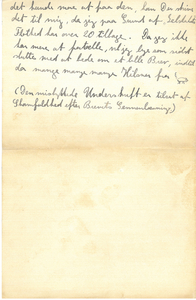 det kunde more at faa den, kan Du skrive
det til mig, da jeg paa Grund af
har over 20 tillage. Da jeg ikke
har mere at fortælle, vil jeg som sidst
slutte med at bede om et lille Brev, indtil
der mange mange mange Hilsner fra
(Den mislykkede Underskrift er tilsat af
efter Brevets Gennemlæsning)